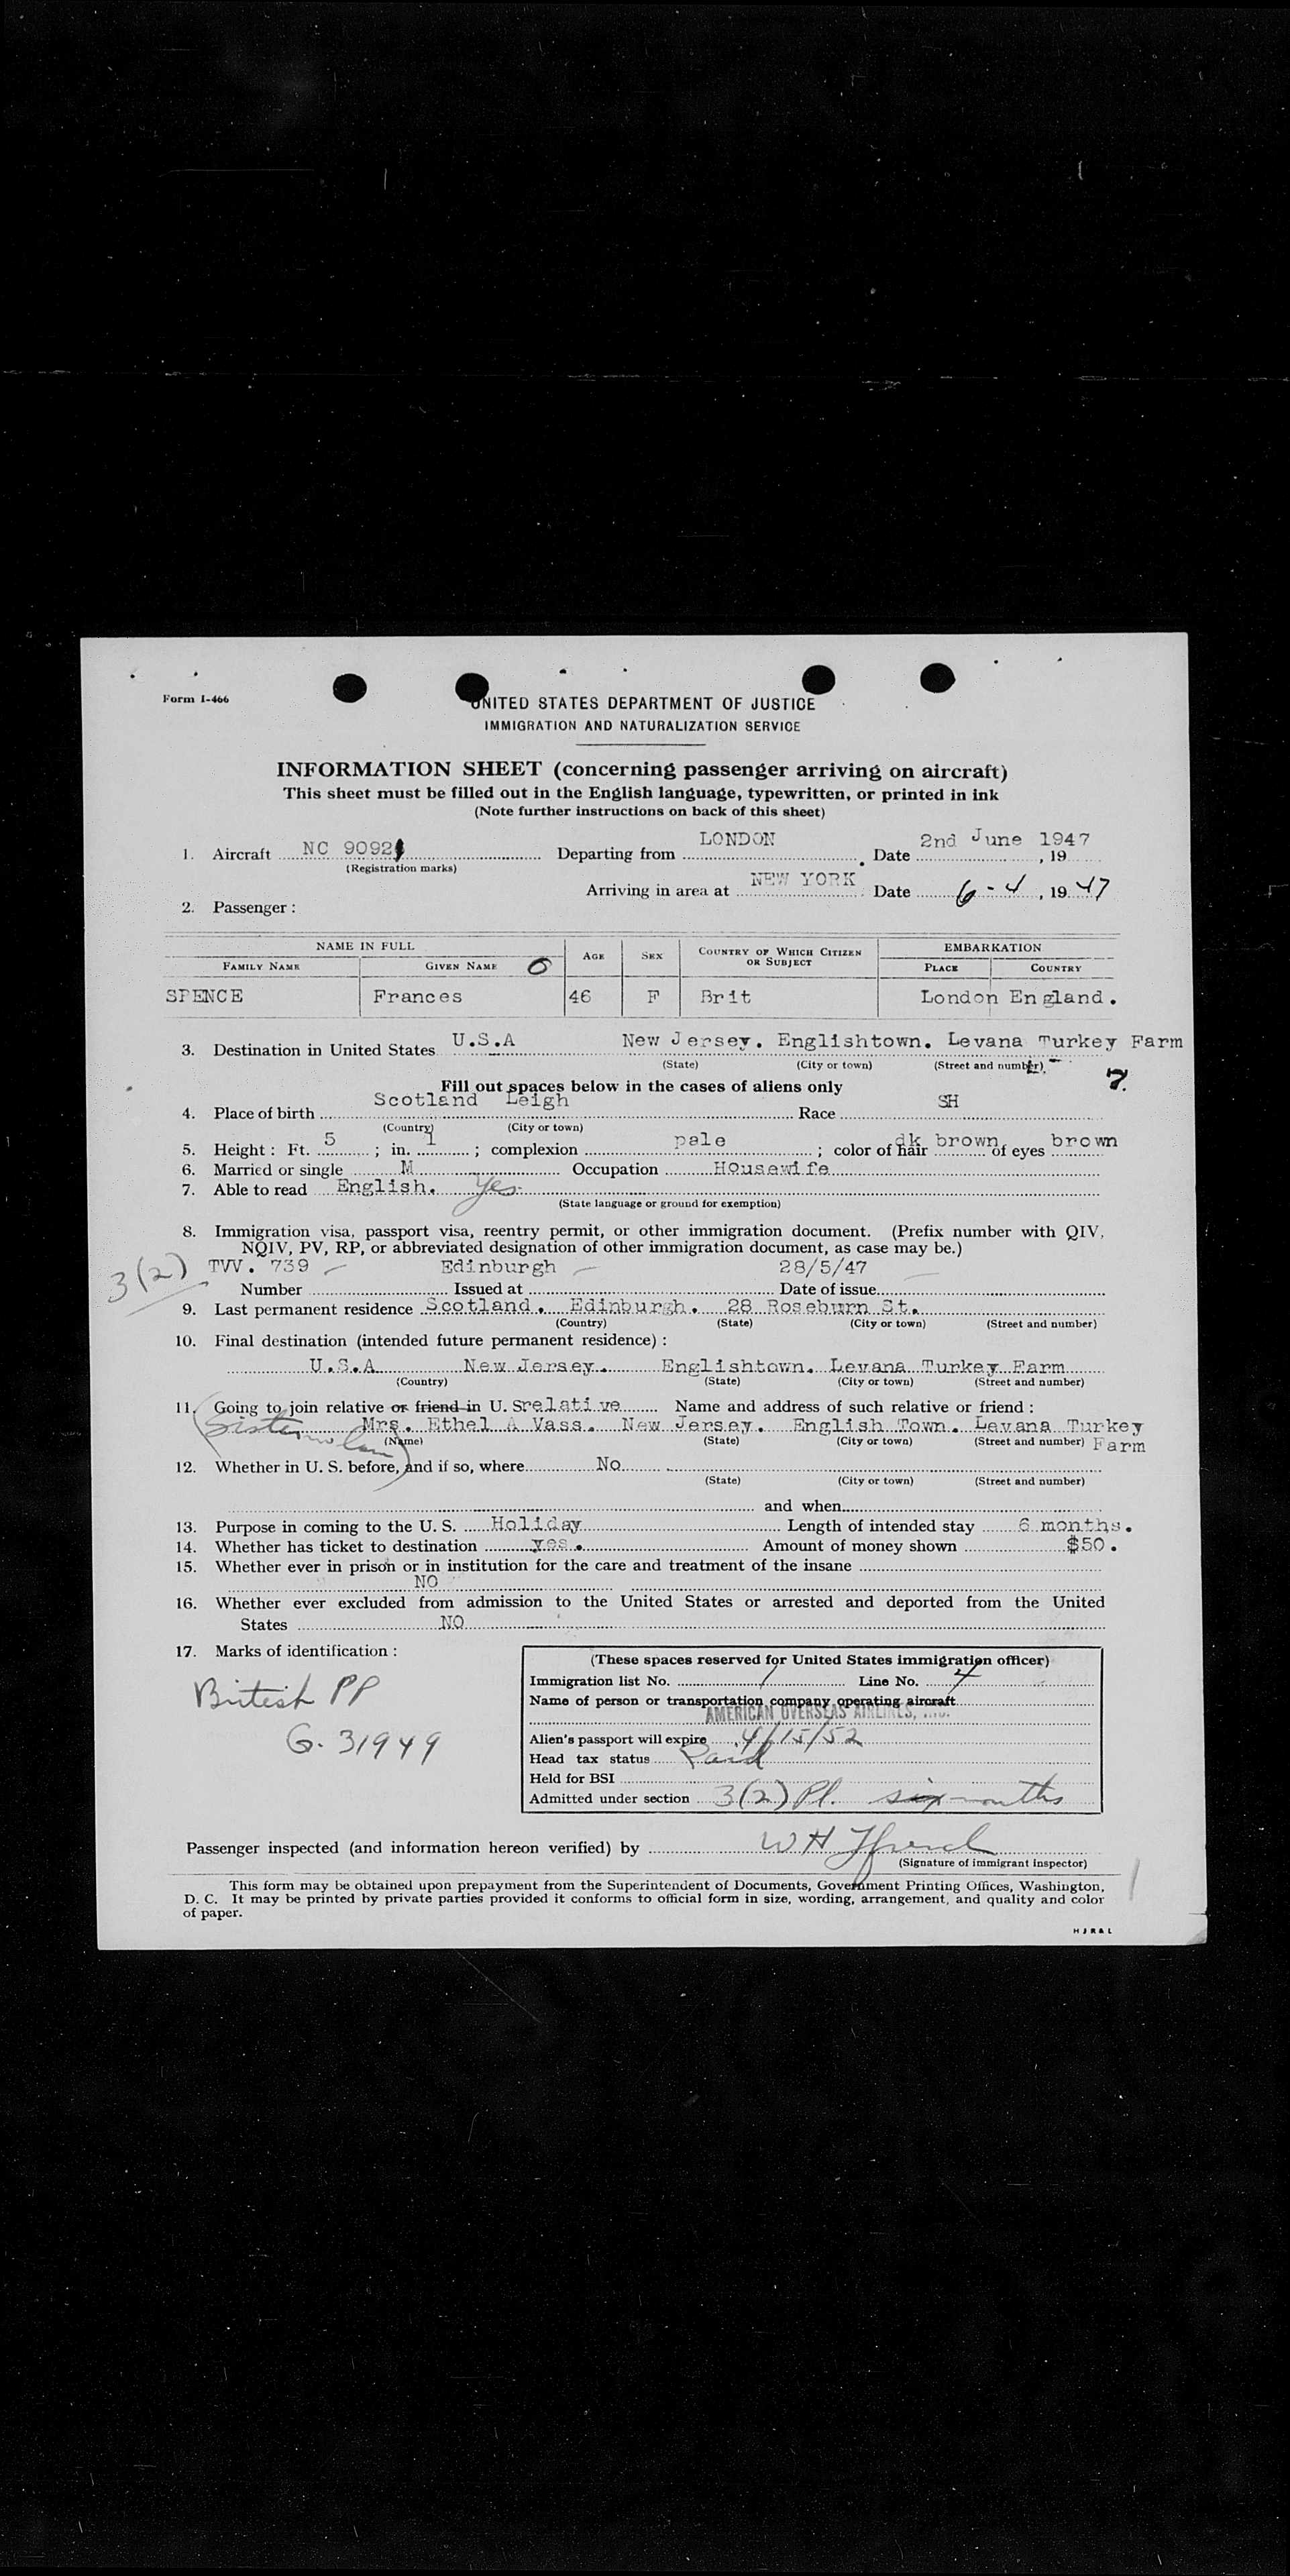 Form I-466
UNITED STATES DEPARTMENT OF JUSTICE
IMMIGRATION AND NATURALIZATION SERVICE
INFORMATION SHEET (concerning passenger arriving on aircraft)
This sheet must be filled out in the English language, typewritten, or printed in ink
(Note further instructions on back of this sheet)
1. Aircraft NC 9092 Departing from LONDON Date 2nd June 1947, 19
(Registration marks)
Arriving in area at NEW YORK Date 6-4, 1947
2. Passenger:
NAME IN FULL AGE SEX COUNTRY OF WHICH CITIZEN OR SUBJECT EMBARKATION
FAMILY NAME GIVEN NAME PLACE COUNTRY
SPENCE Frances 46 F Brit London England.
3. Destination in United States U.S.A New Jersey. Englishtown. Levana Turkey Farm
(State) (City or town) (Street and number)
7.
Fill out spaces below in the cases of aliens only
4. Place of birth Scotland Leigh Race SH
(Country) (City or town)
5. Height: Ft. 5; in. 1; complexion pale; color of hair dk brown of eyes brown
6. Married or single M Occupation HOusewife
7. Able to read English. Yes
(State language or ground for exemption)
8. Immigration visa, passport visa, reentry permit, or other immigration document. (Prefix number with QIV,
NQIV, PV, RP, or abbreviated designation of other immigration document, as case may be.)
3(2) TVV. 739 Edinburgh 28/5/47
Number Issued at Date of issue
9. Last permanent residence Scotland. Edinburgh. 28 Roseburn St.
(Country) (State) (City or town) (Street and number)
10. Final destination (intended future permanent residence):
U.S.A New Jersey. Englishtown. Levana Turkey Farm
(Country) (State) (City or town) (Street and number)
11. Going to join relative or friend in U. S. relative Name and address of such relative or friend:
(Sister in law) Mrs. Ethel A Vass. New Jersey. English Town. Levana Turkey
(Name) (State) (City or town) (Street and number) Farm
12. Whether in U. S. before, and if so, where No
(State) (City or town) (Street and number)
and when
13. Purpose in coming to the U. S. Holiday Length of intended stay 6 months.
14. Whether has ticket to destination yes. Amount of money shown $50.
15. Whether ever in prison or in institution for the care and treatment of the insane
NO
16. Whether ever excluded from admission to the United States or arrested and deported from the United
States NO
17. Marks of identification:
British PP
G. 31949
(These spaces reserved for United States immigration officer)
Immigration list No. 1 Line No. 4
Name of person or transportation company operating aircraft
AMERICAN OVERSEAS AIRLINES, INC.
Alien's passport will expire 4/15/52
Head tax status Paid
Held for BSI
Admitted under section 3(2) Pl. six months
Passenger inspected (and information hereon verified) by W H
(Signature of immigrant inspector)
This form may be obtained upon prepayment from the Superintendent of Documents, Government Printing Offices, Washington,
D. C. It may be printed by private parties provided it conforms to official form in size, wording, arrangement, and quality and color
of paper.
H J R & L